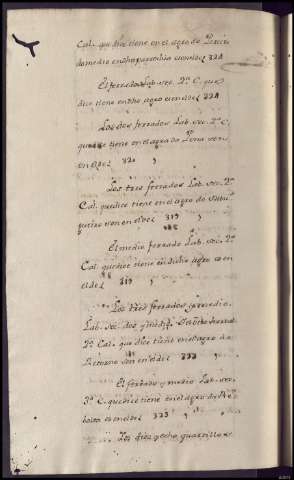 Cal. que dice tiene en el agro de
domedio en dha parrochia es en el de 324
El ferrado Lab. sec. 2ª C. que
dice tiene en dho agro es en el de 324
Los dos ferrados Lab. sec. 2ª C.
que dice tiene en el agro de Pena son
en el de 320
Los tres ferrados Lab. sec. 2ª
Cal. que dice tiene en el agro de
son en el de 319
El medio ferrado Lab. sec. 2ª
Cal. que dice tiene en dicho agro es en
el de 319
Los tres ferrados y medio
Lab. sec. dos y medio
2ª Cal. que dice tiene en el agro de
son en el de 333
El ferrado y medio Lab. sec.
3ª C. que dice tiene en el agro da
es en el de 325
Los diez y ocho quartillos